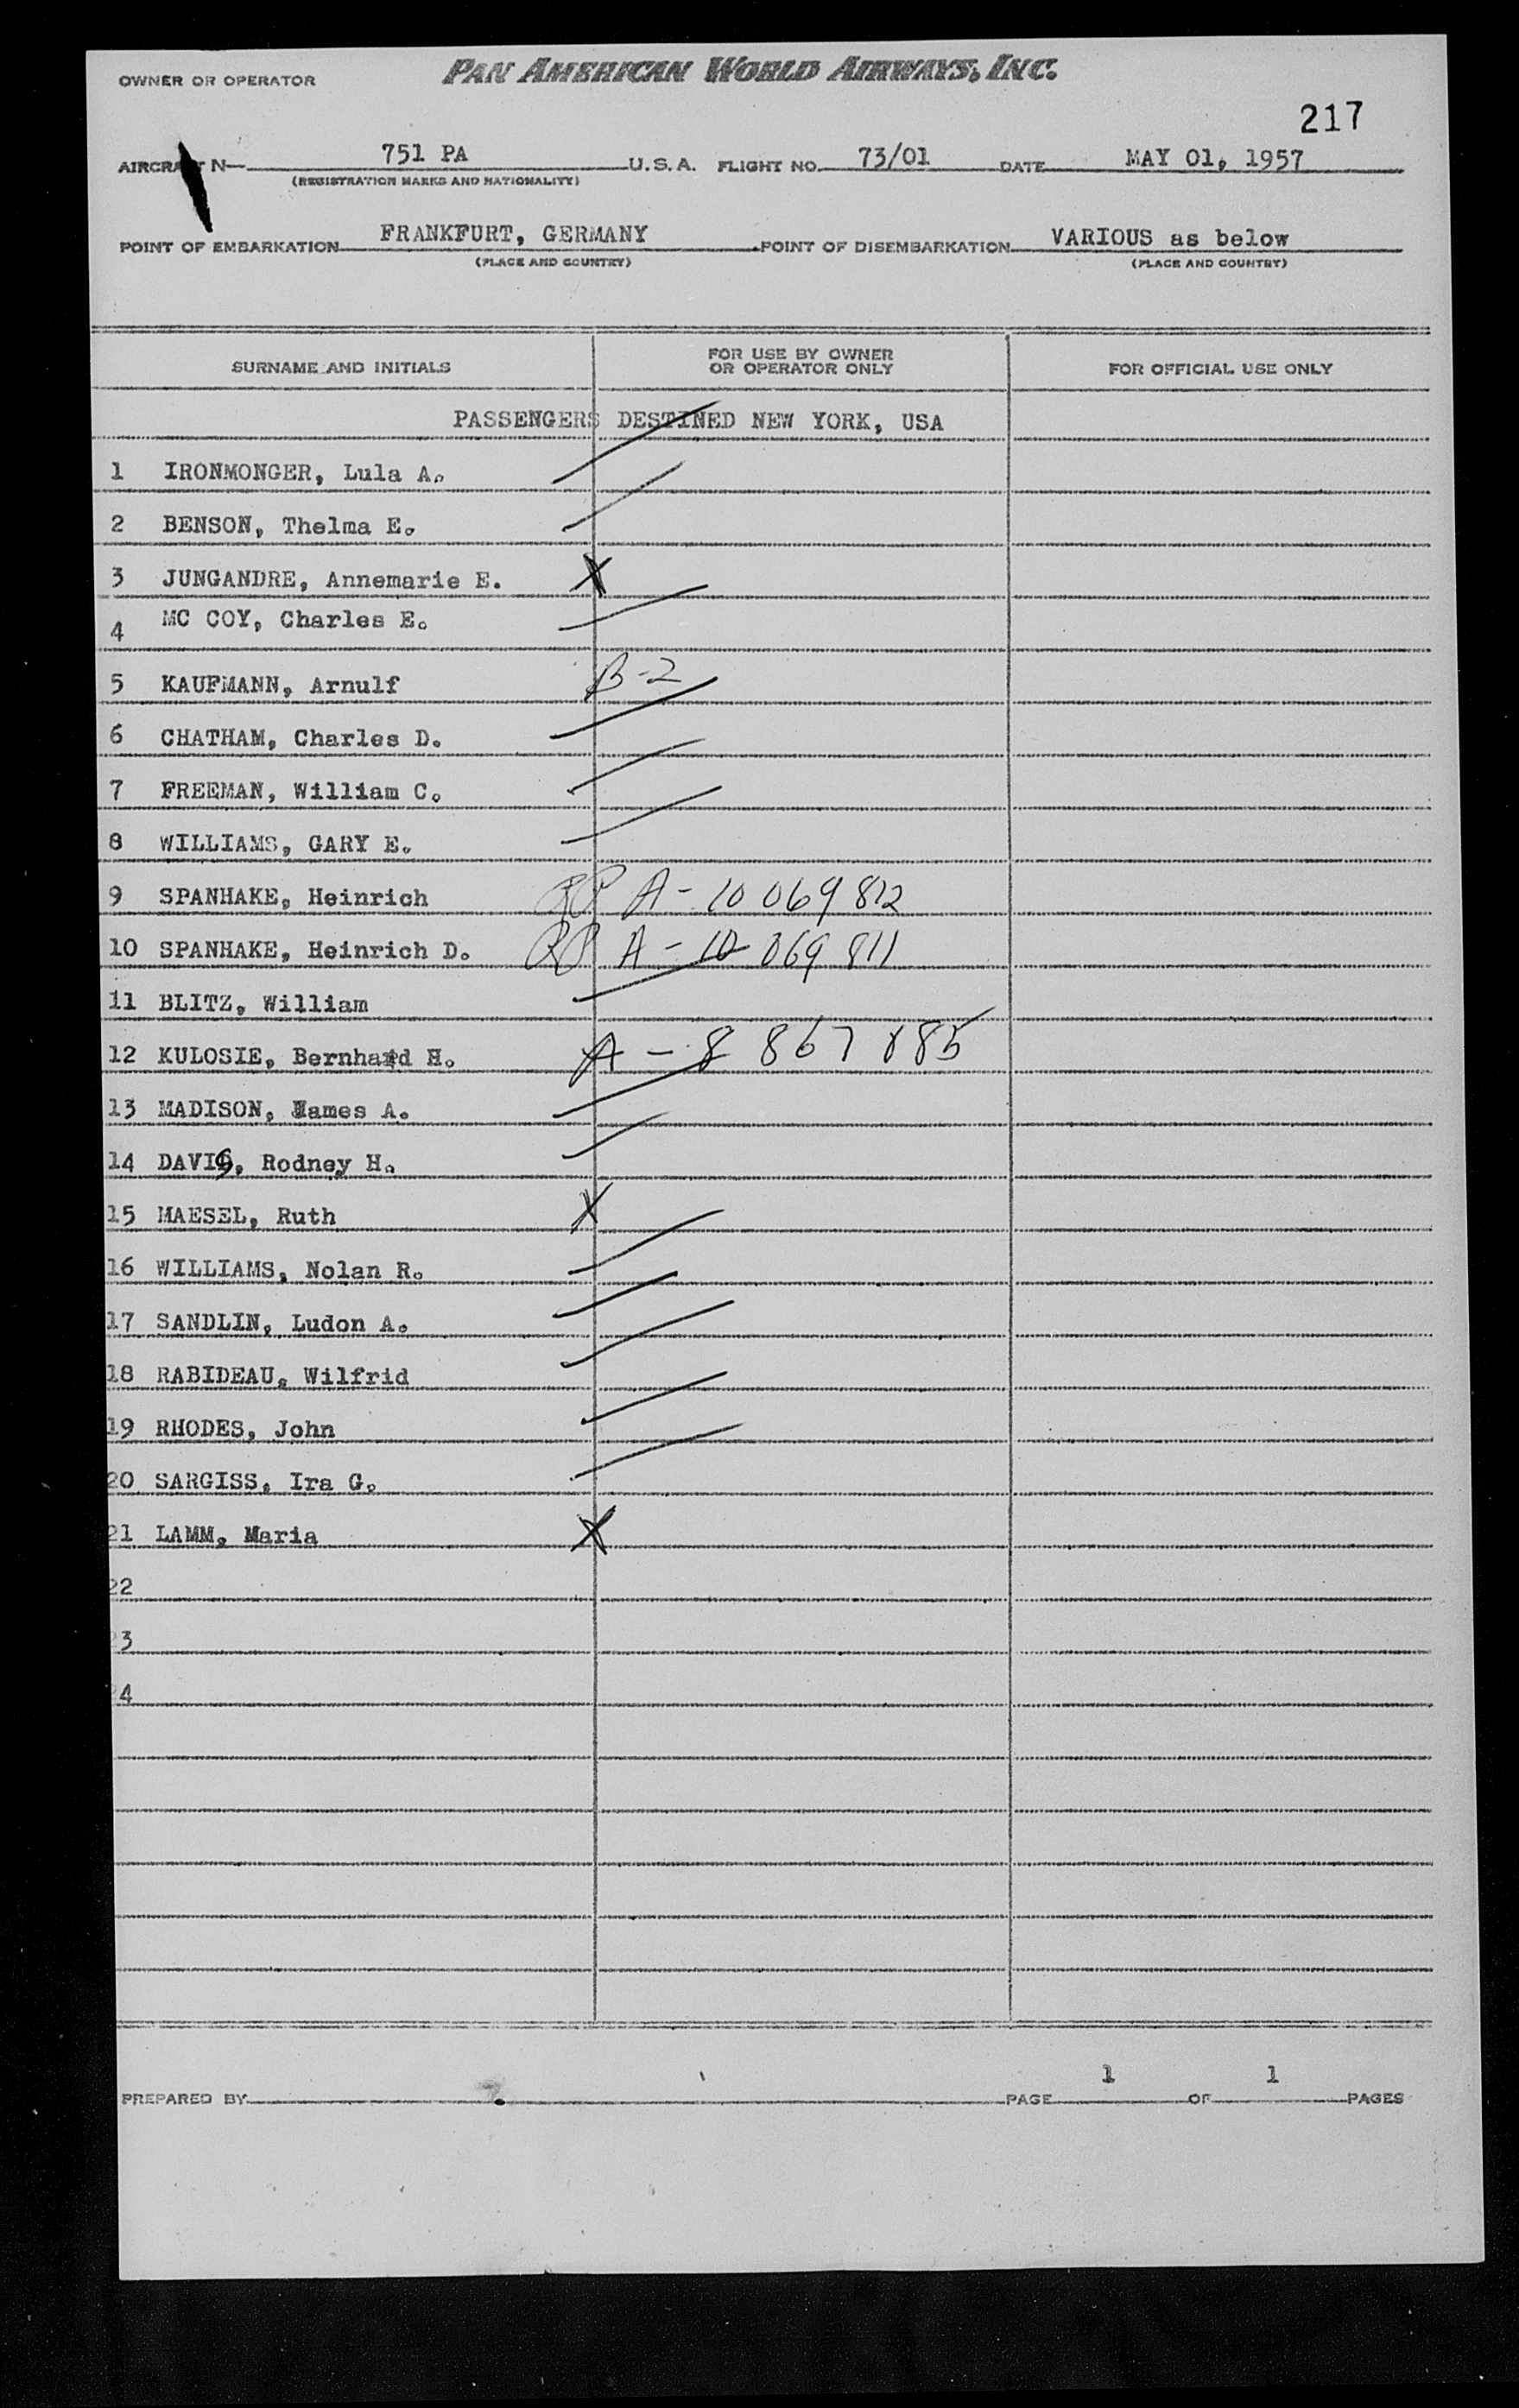 OWNER OR OPERATOR PAN AMERICAN WORLD AIRWAYS, INC.
217
AIRCRAFT N— 751 PA U.S.A. FLIGHT NO. 73/01 DATE MAY 01, 1957
(REGISTRATION MARKS AND NATIONALITY)
POINT OF EMBARKATION FRANKFURT, GERMANY POINT OF DISEMBARKATION VARIOUS as below
(PLACE AND COUNTRY) (PLACE AND COUNTRY)
SURNAME AND INITIALS FOR USE BY OWNER OR OPERATOR ONLY FOR OFFICIAL USE ONLY
PASSENGERS DESTINED NEW YORK, USA
1 IRONMONGER, Lula A.
2 BENSON, Thelma E.
3 JUNGANDRE, Annemarie E. X
4 MC COY, Charles E.
5 KAUFMANN, Arnulf B-2
6 CHATHAM, Charles D.
7 FREEMAN, William C.
8 WILLIAMS, GARY E.
9 SPANHAKE, Heinrich RP A-10 069 812
10 SPANHAKE, Heinrich D. RP A-10 069 811
11 BLITZ, William
12 KULOSIE, Bernhard H. A-8 867 885
13 MADISON, James A.
14 DAVIS, Rodney H.
15 MAESEL, Ruth X
16 WILLIAMS, Nolan R.
17 SANDLIN, Ludon A.
18 RABIDEAU, Wilfrid
19 RHODES, John
20 SARGISS, Ira G.
21 LAMM, Maria X
22
23
24
PREPARED BY PAGE 1 OF 1 PAGES